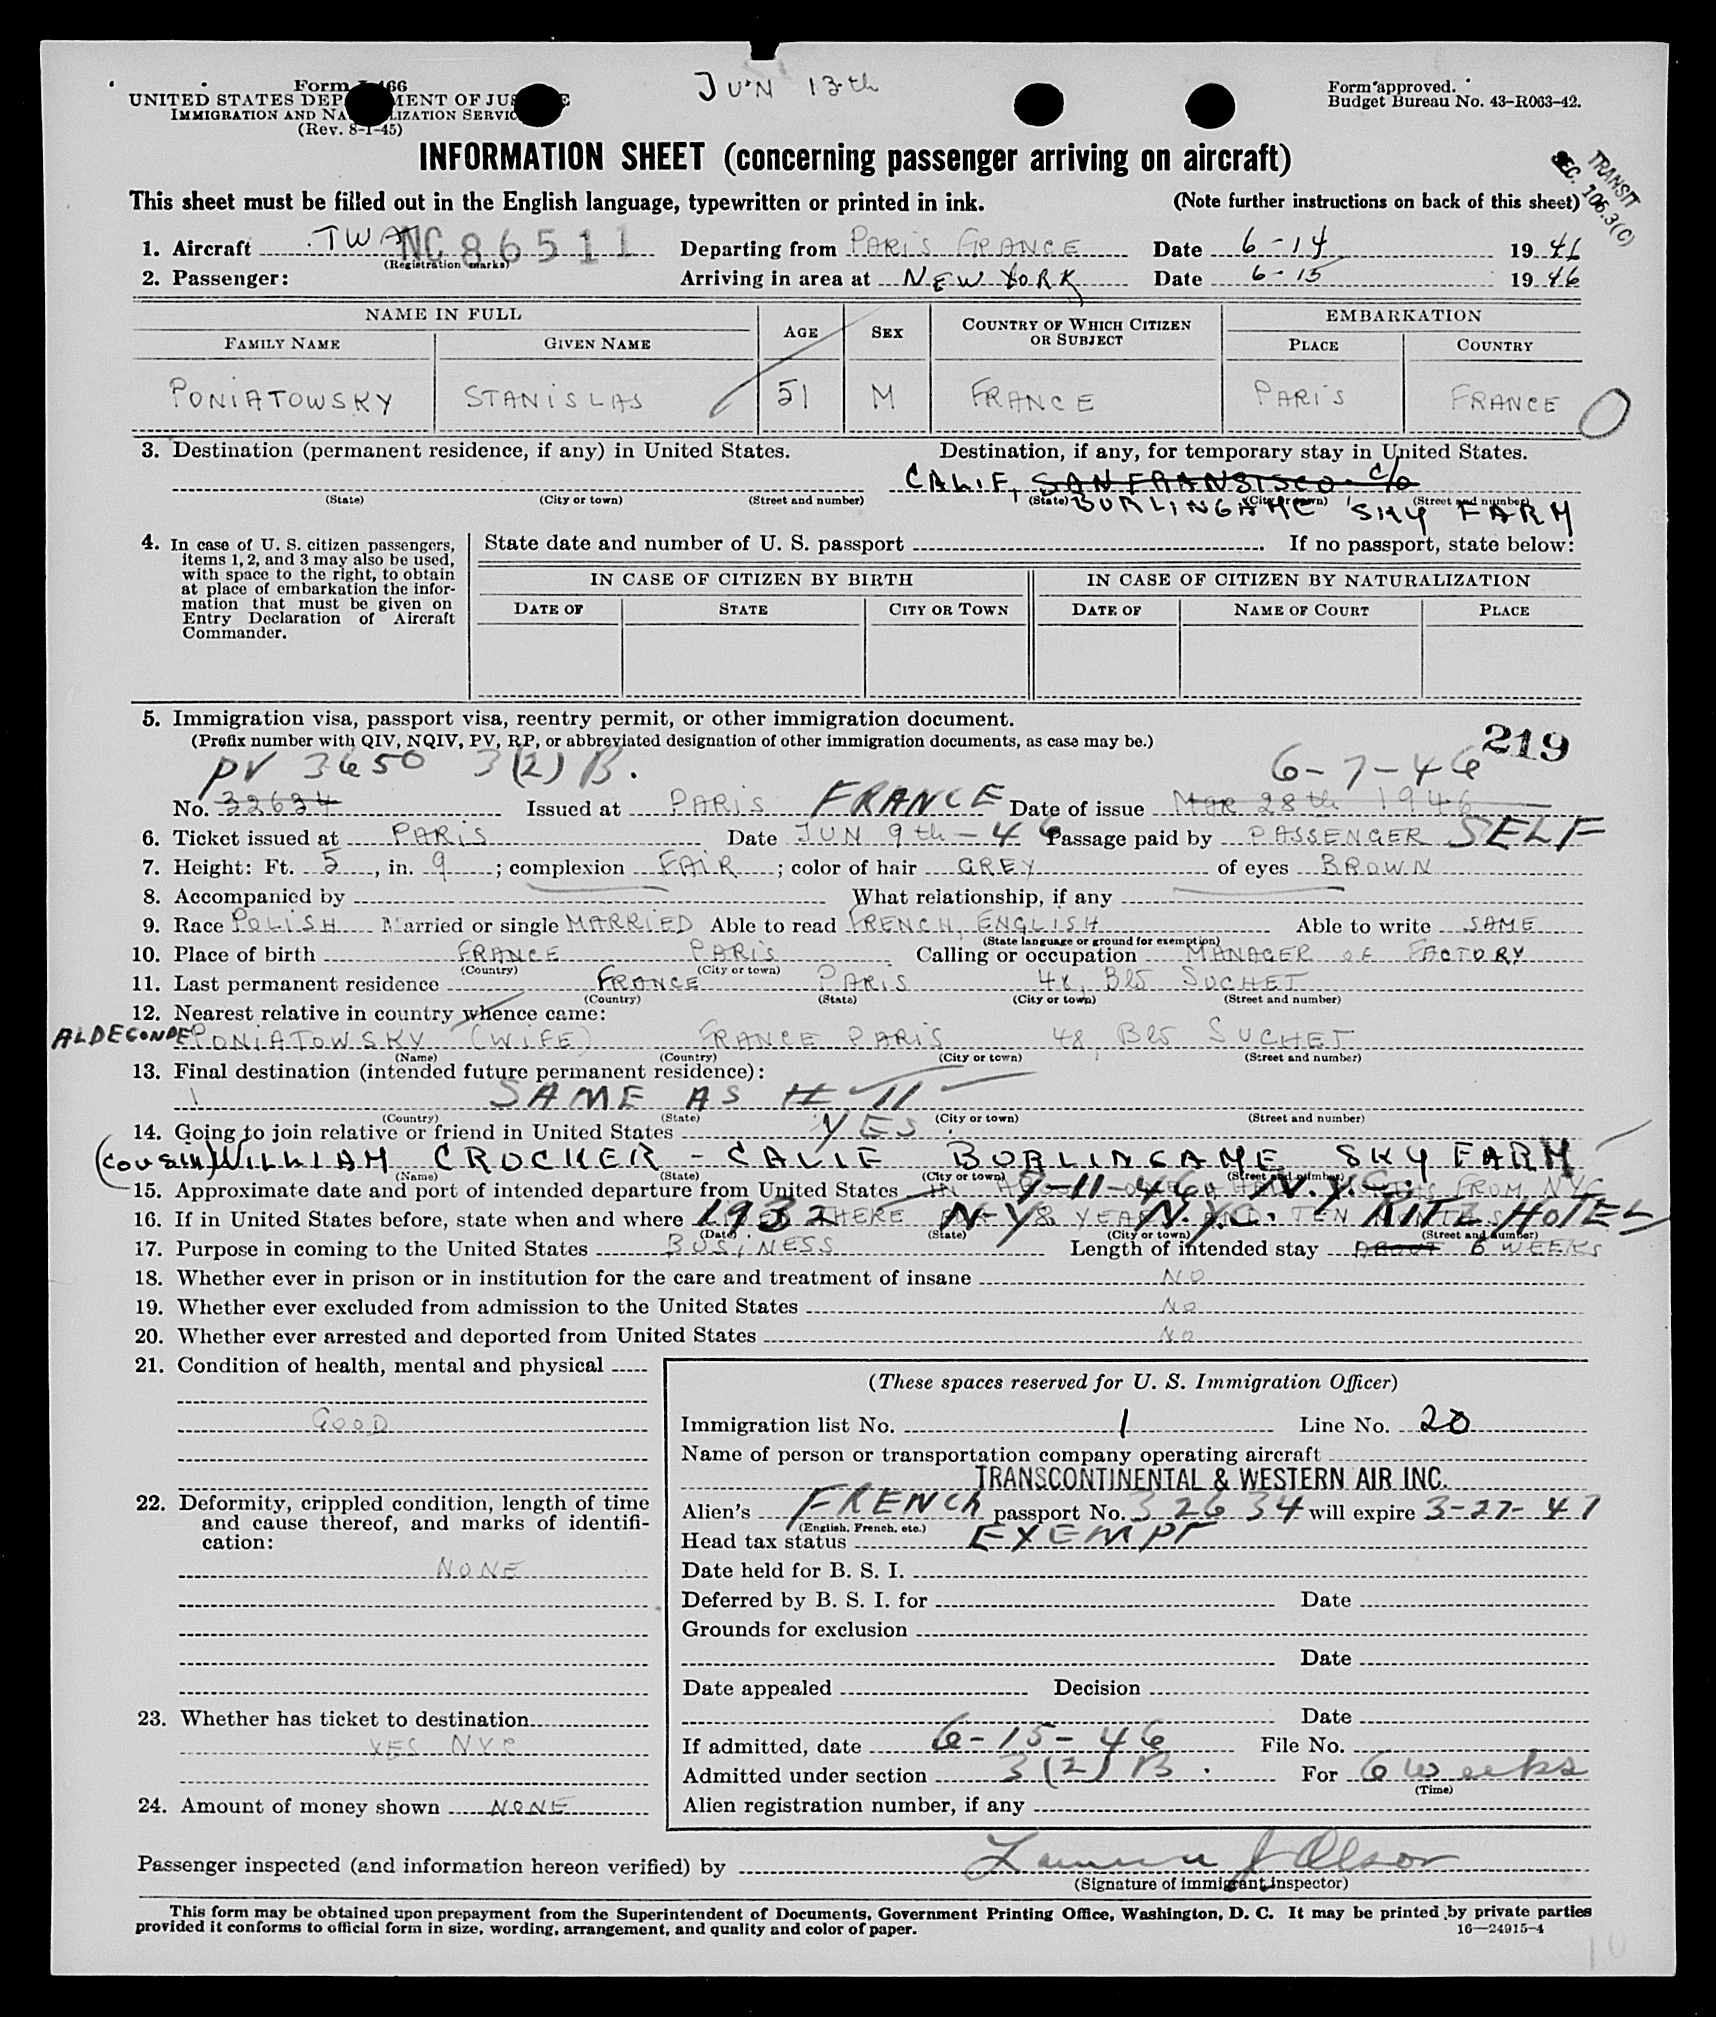 JUN 13th
Form I-466
UNITED STATES DEPARTMENT OF JUSTICE
IMMIGRATION AND NATURALIZATION SERVICE
(Rev. 8-1-45)
Form approved.
Budget Bureau No. 43-R063-42.
INFORMATION SHEET (concerning passenger arriving on aircraft)
TRANSIT
SEC. 106.3(C)
This sheet must be filled out in the English language, typewritten or printed in ink. (Note further instructions on back of this sheet)
1. Aircraft TWA NC 86511 Departing from PARIS FRANCE Date 6-14 1946
(Registration marks)
2. Passenger: Arriving in area at NEW YORK Date 6-15 1946
NAME IN FULL AGE SEX COUNTRY OF WHICH CITIZEN OR SUBJECT EMBARKATION
FAMILY NAME GIVEN NAME PLACE COUNTRY
PONIATOWSKY STANISLAS 51 M FRANCE PARIS FRANCE
3. Destination (permanent residence, if any) in United States. Destination, if any, for temporary stay in United States.
CALIF, SAN FRANSISCO c/o
(State) (City or town) (Street and number) (State) (City or town) (Street and number)
BURLINGAME SKY FARM
4. In case of U. S. citizen passengers, items 1, 2, and 3 may also be used, with space to the right, to obtain at place of embarkation the information that must be given on Entry Declaration of Aircraft Commander.
State date and number of U. S. passport . If no passport, state below:
IN CASE OF CITIZEN BY BIRTH IN CASE OF CITIZEN BY NATURALIZATION
DATE OF STATE CITY OR TOWN DATE OF NAME OF COURT PLACE
5. Immigration visa, passport visa, reentry permit, or other immigration document.
(Prefix number with QIV, NQIV, PV, RP, or abbreviated designation of other immigration documents, as case may be.)
219
PV 3650 3(2)B. 6-7-46
No. 32634 Issued at PARIS FRANCE Date of issue MAR 28th 1946
6. Ticket issued at PARIS Date JUN 9th-46 Passage paid by PASSENGER SELF
7. Height: Ft. 5, in. 9; complexion FAIR; color of hair GREY of eyes BROWN
8. Accompanied by What relationship, if any
9. Race POLISH Married or single MARRIED Able to read FRENCH, ENGLISH Able to write SAME
(State language or ground for exemption)
10. Place of birth FRANCE PARIS Calling or occupation MANAGER OF FACTORY
(Country) (City or town)
11. Last permanent residence FRANCE PARIS 48, Bld SUCHET
(Country) (State) (City or town) (Street and number)
12. Nearest relative in country whence came:
ALDEGONDE PONIATOWSKY (WIFE) FRANCE PARIS 48, Bld SUCHET
(Name) (Country) (City or town) (Street and number)
13. Final destination (intended future permanent residence):
SAME AS # 11
(Country) (State) (City or town) (Street and number)
14. Going to join relative or friend in United States YES
(COUSIN) WILLIAM CROCKER - CALIF BURLINGAME SKY FARM
(Name) (State) (City or town) (Street and number)
15. Approximate date and port of intended departure from United States IN 9-11-46 N.Y.C. FROM NYC
16. If in United States before, state when and where 1932 THERE N-Y 8 YEARS N.Y.C. AND TEN RITZ HOTEL
(Date) (State) (City or town) (Street and number)
17. Purpose in coming to the United States BUSINESS Length of intended stay ABOUT 6 WEEKS
18. Whether ever in prison or in institution for the care and treatment of insane NO
19. Whether ever excluded from admission to the United States NO
20. Whether ever arrested and deported from United States NO
21. Condition of health, mental and physical
GOOD
22. Deformity, crippled condition, length of time and cause thereof, and marks of identification:
NONE
23. Whether has ticket to destination
YES NYC
24. Amount of money shown NONE
(These spaces reserved for U. S. Immigration Officer)
Immigration list No. 1 Line No. 20
Name of person or transportation company operating aircraft
TRANSCONTINENTAL & WESTERN AIR INC.
Alien's FRENCH passport No. 32634 will expire 3-27-47
(English, French, etc.)
Head tax status EXEMPT
Date held for B. S. I.
Deferred by B. S. I. for Date
Grounds for exclusion
Date
Date appealed Decision
Date
If admitted, date 6-15-46 File No.
Admitted under section 3(2)B. For 6 weeks
(Time)
Alien registration number, if any
Passenger inspected (and information hereon verified) by J Olson
(Signature of immigrant inspector)
This form may be obtained upon prepayment from the Superintendent of Documents, Government Printing Office, Washington, D. C. It may be printed by private parties
provided it conforms to official form in size, wording, arrangement, and quality and color of paper. 16—24915-4
10